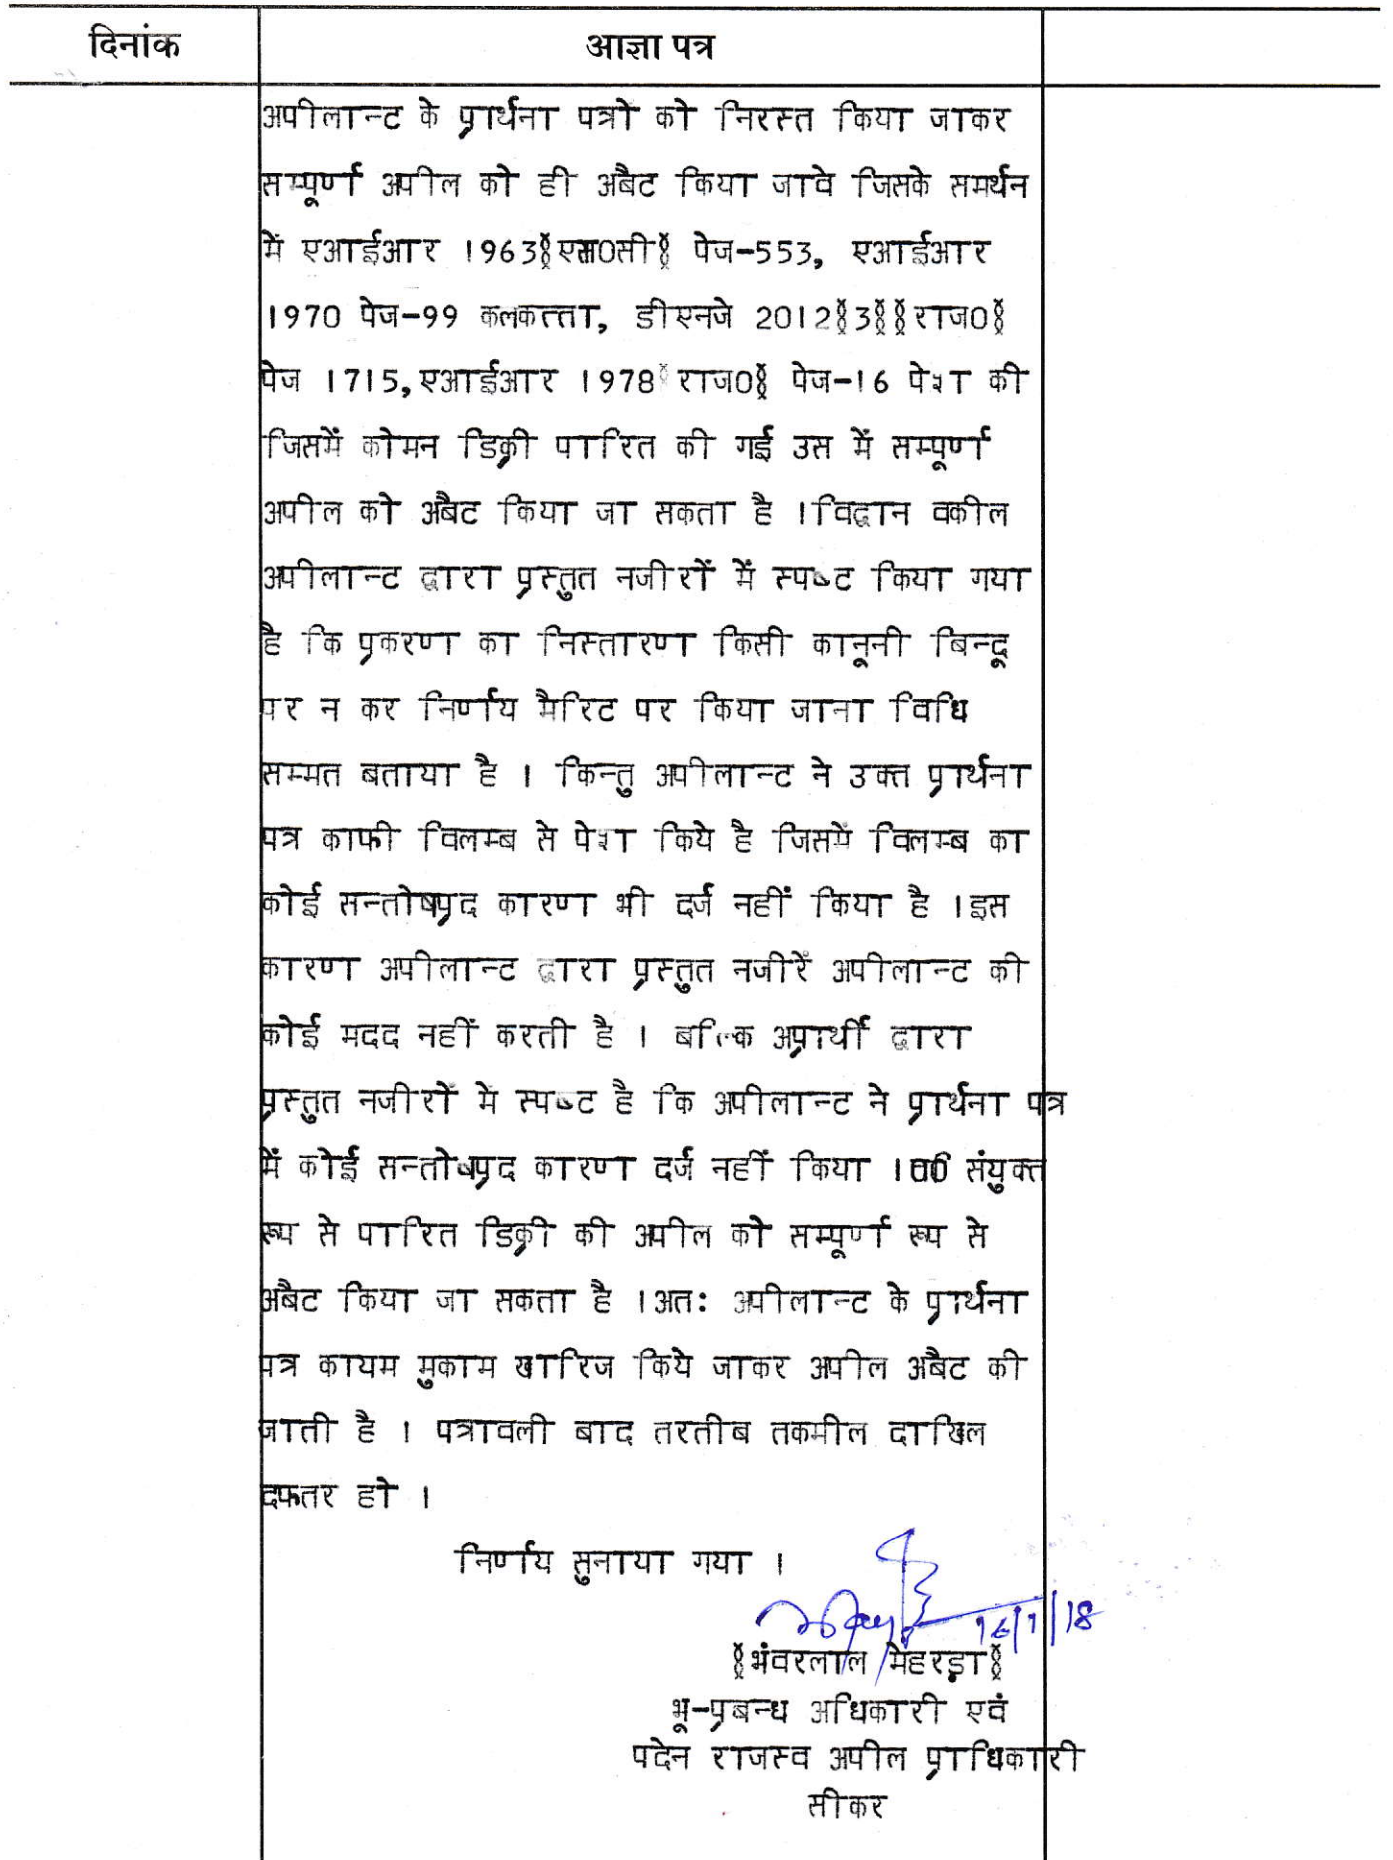 दिनांक
आज्ञा पत्र
अपीलान्ट के प्रार्थना पत्रों को निरस्त किया जाकर
सम्पूर्ण अपील को ही अबैट किया जावे जिसके समर्थन
में एआईआर 1963(एस0सी) पेज-553, एआईआर
1970 पेज-99 कलकत्ता, डीएनजे 2012(3)(राज0)
पेज 1715,एआईआर 1978(राज0) पेज-16 पेश की
जिसमें कोमन डिक्री पारित की गई उस में सम्पूर्ण
अपील को अबैट किया जा सकता है ।विद्वान वकील
अपीलान्ट द्वारा प्रस्तुत नजीरों में स्पष्ट किया गया
है कि प्रकरण का निस्तारण किसी कानूनी बिन्दू
पर न कर निर्णय मैरिट पर किया जाना विधि
सम्मत बताया है । किन्तु अपीलान्ट ने उक्त प्रार्थना
पत्र काफी विलम्ब से पेश किये है जिसमें विलम्ब का
कोई सन्तोषप्रद कारण भी दर्ज नहीं किया है ।इस
कारण अपीलान्ट द्वारा प्रस्तुत नजीरें अपीलान्ट की
कोई मदद नहीं करती है । बल्कि अप्रार्थी द्वारा
प्रस्तुत नजीरों मे स्पष्ट है कि अपीलान्ट ने प्रार्थना पत्र
में कोई सन्तोषप्रद कारण दर्ज नहीं किया । संयुक्त
रूप से पारित डिक्री की अपील को सम्पूर्ण रूप से
अबैट किया जा सकता है ।अतः अपीलान्ट के प्रार्थना
पत्र कायम मुकाम खारिज किये जाकर अपील अबैट की
जाती है । पत्रावली बाद तरतीब तकमील दाखिल
दफतर हो ।
निर्णय सुनाया गया ।
16/1/18
(भंवरलाल मेहरड़ा)
भू-प्रबन्ध अधिकारी एवं
पदेन राजस्व अपील प्राधिकारी
सीकर